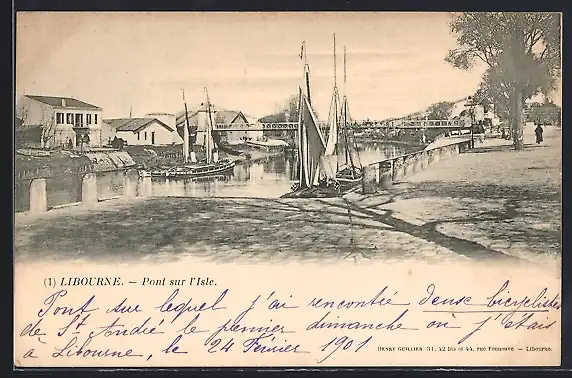 (1) LIBOURNE. — Pont sur l'Isle.
Pont sur lequel j'ai rencontré deux bicyclistes
de St André le premier dimanche où j'étais
à Libourne, le 24 Février 1901
HENRY GUILLIER, 31, 42 bis et 44, rue Fonneuve — Libourne.